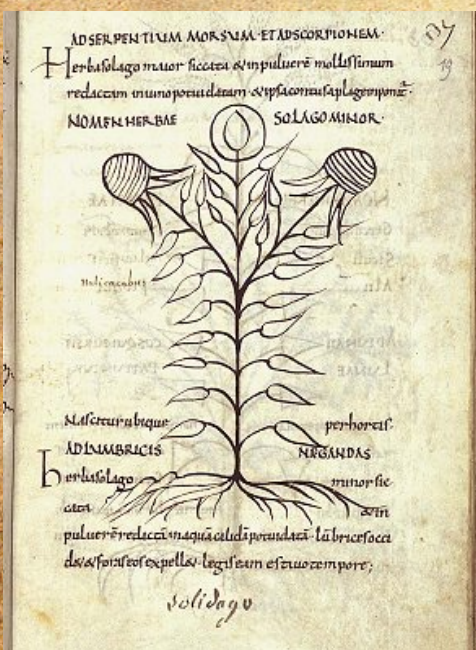 AD SERPENTIUM MORSUM·ET AD SCORPIONEM·
Herba solago maior siccata & in pulverē mollissimum
redactam in uno potui datam· & ipsa contusa plage inponit̄·
NOMEN HERBAE SOLAGO MINOR·
Nascitur ubique per hortis·
AD LUMBRICIS NEGANDAS
herba solago minor sic
cata & in
pulverē redactā in aquā calidā potui datā· lūbrices occi
d& & foris eos expell&· legis eam estivo tempore;
solidago